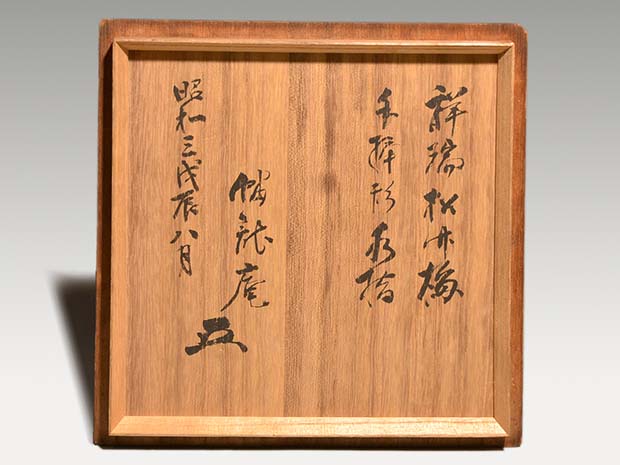 祥瑞松竹梅
手形水指
昭和三戊辰八月
龍庵